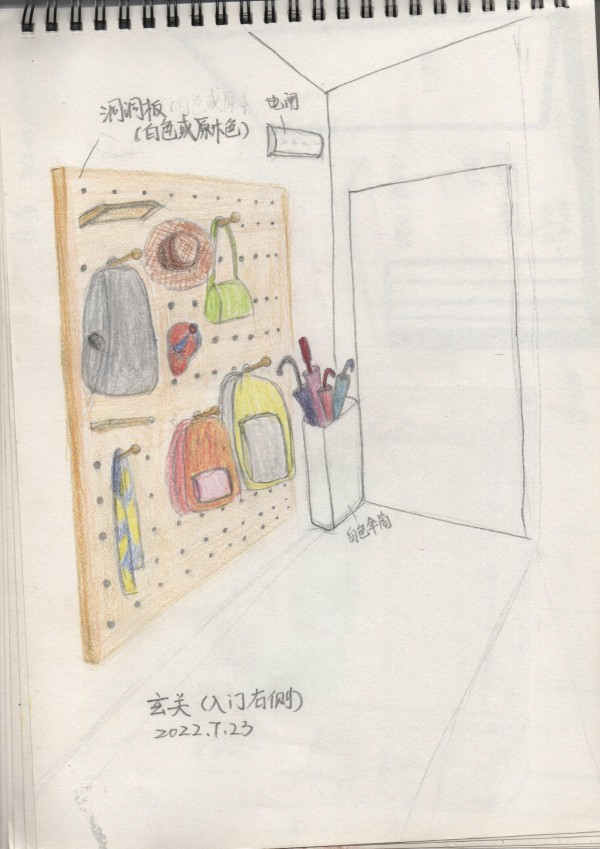 洞洞板
(白色或原木色)
电闸
白色伞筒
玄关(入门右侧)
2022.7.23